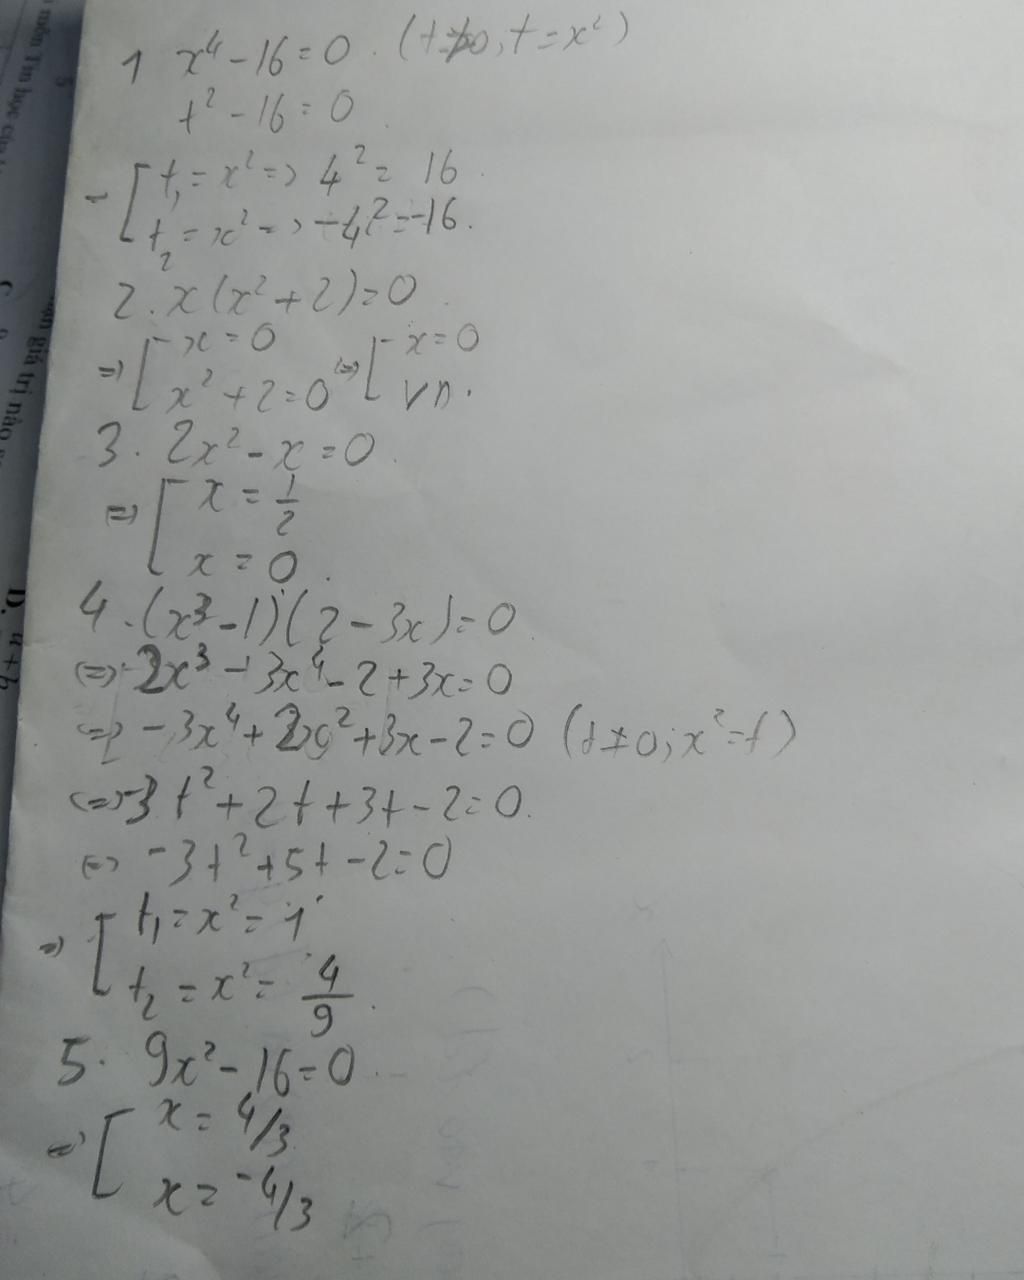 1 x⁴ - 16 = 0 . (t ≠ 0, t = x²)
t² - 16 = 0
- [ t₁ = x² => 4² = 16 .
t₂ = x² => -4² = -16.
2. x(x² + 2) = 0 .
=> [ x = 0 (=) [ x = 0
x² + 2 = 0 vn.
3. 2x² - x = 0 .
(=) [ x = 1/2
x = 0 .
4. (x³ - 1)(2 - 3x) = 0
(=) 2x³ - 3x⁴ - 2 + 3x = 0
(=) -3x⁴ + 2x² + 3x - 2 = 0 (t ≠ 0; x² = t)
(=) -3t² + 2t + 3t - 2 = 0.
(=) -3t² + 5t - 2 = 0
=) [ t₁ = x² = 1
t₂ = x² = 4/9 .
5. 9x² - 16 = 0 .
=) [ x = 4/3
x = -4/3
D.